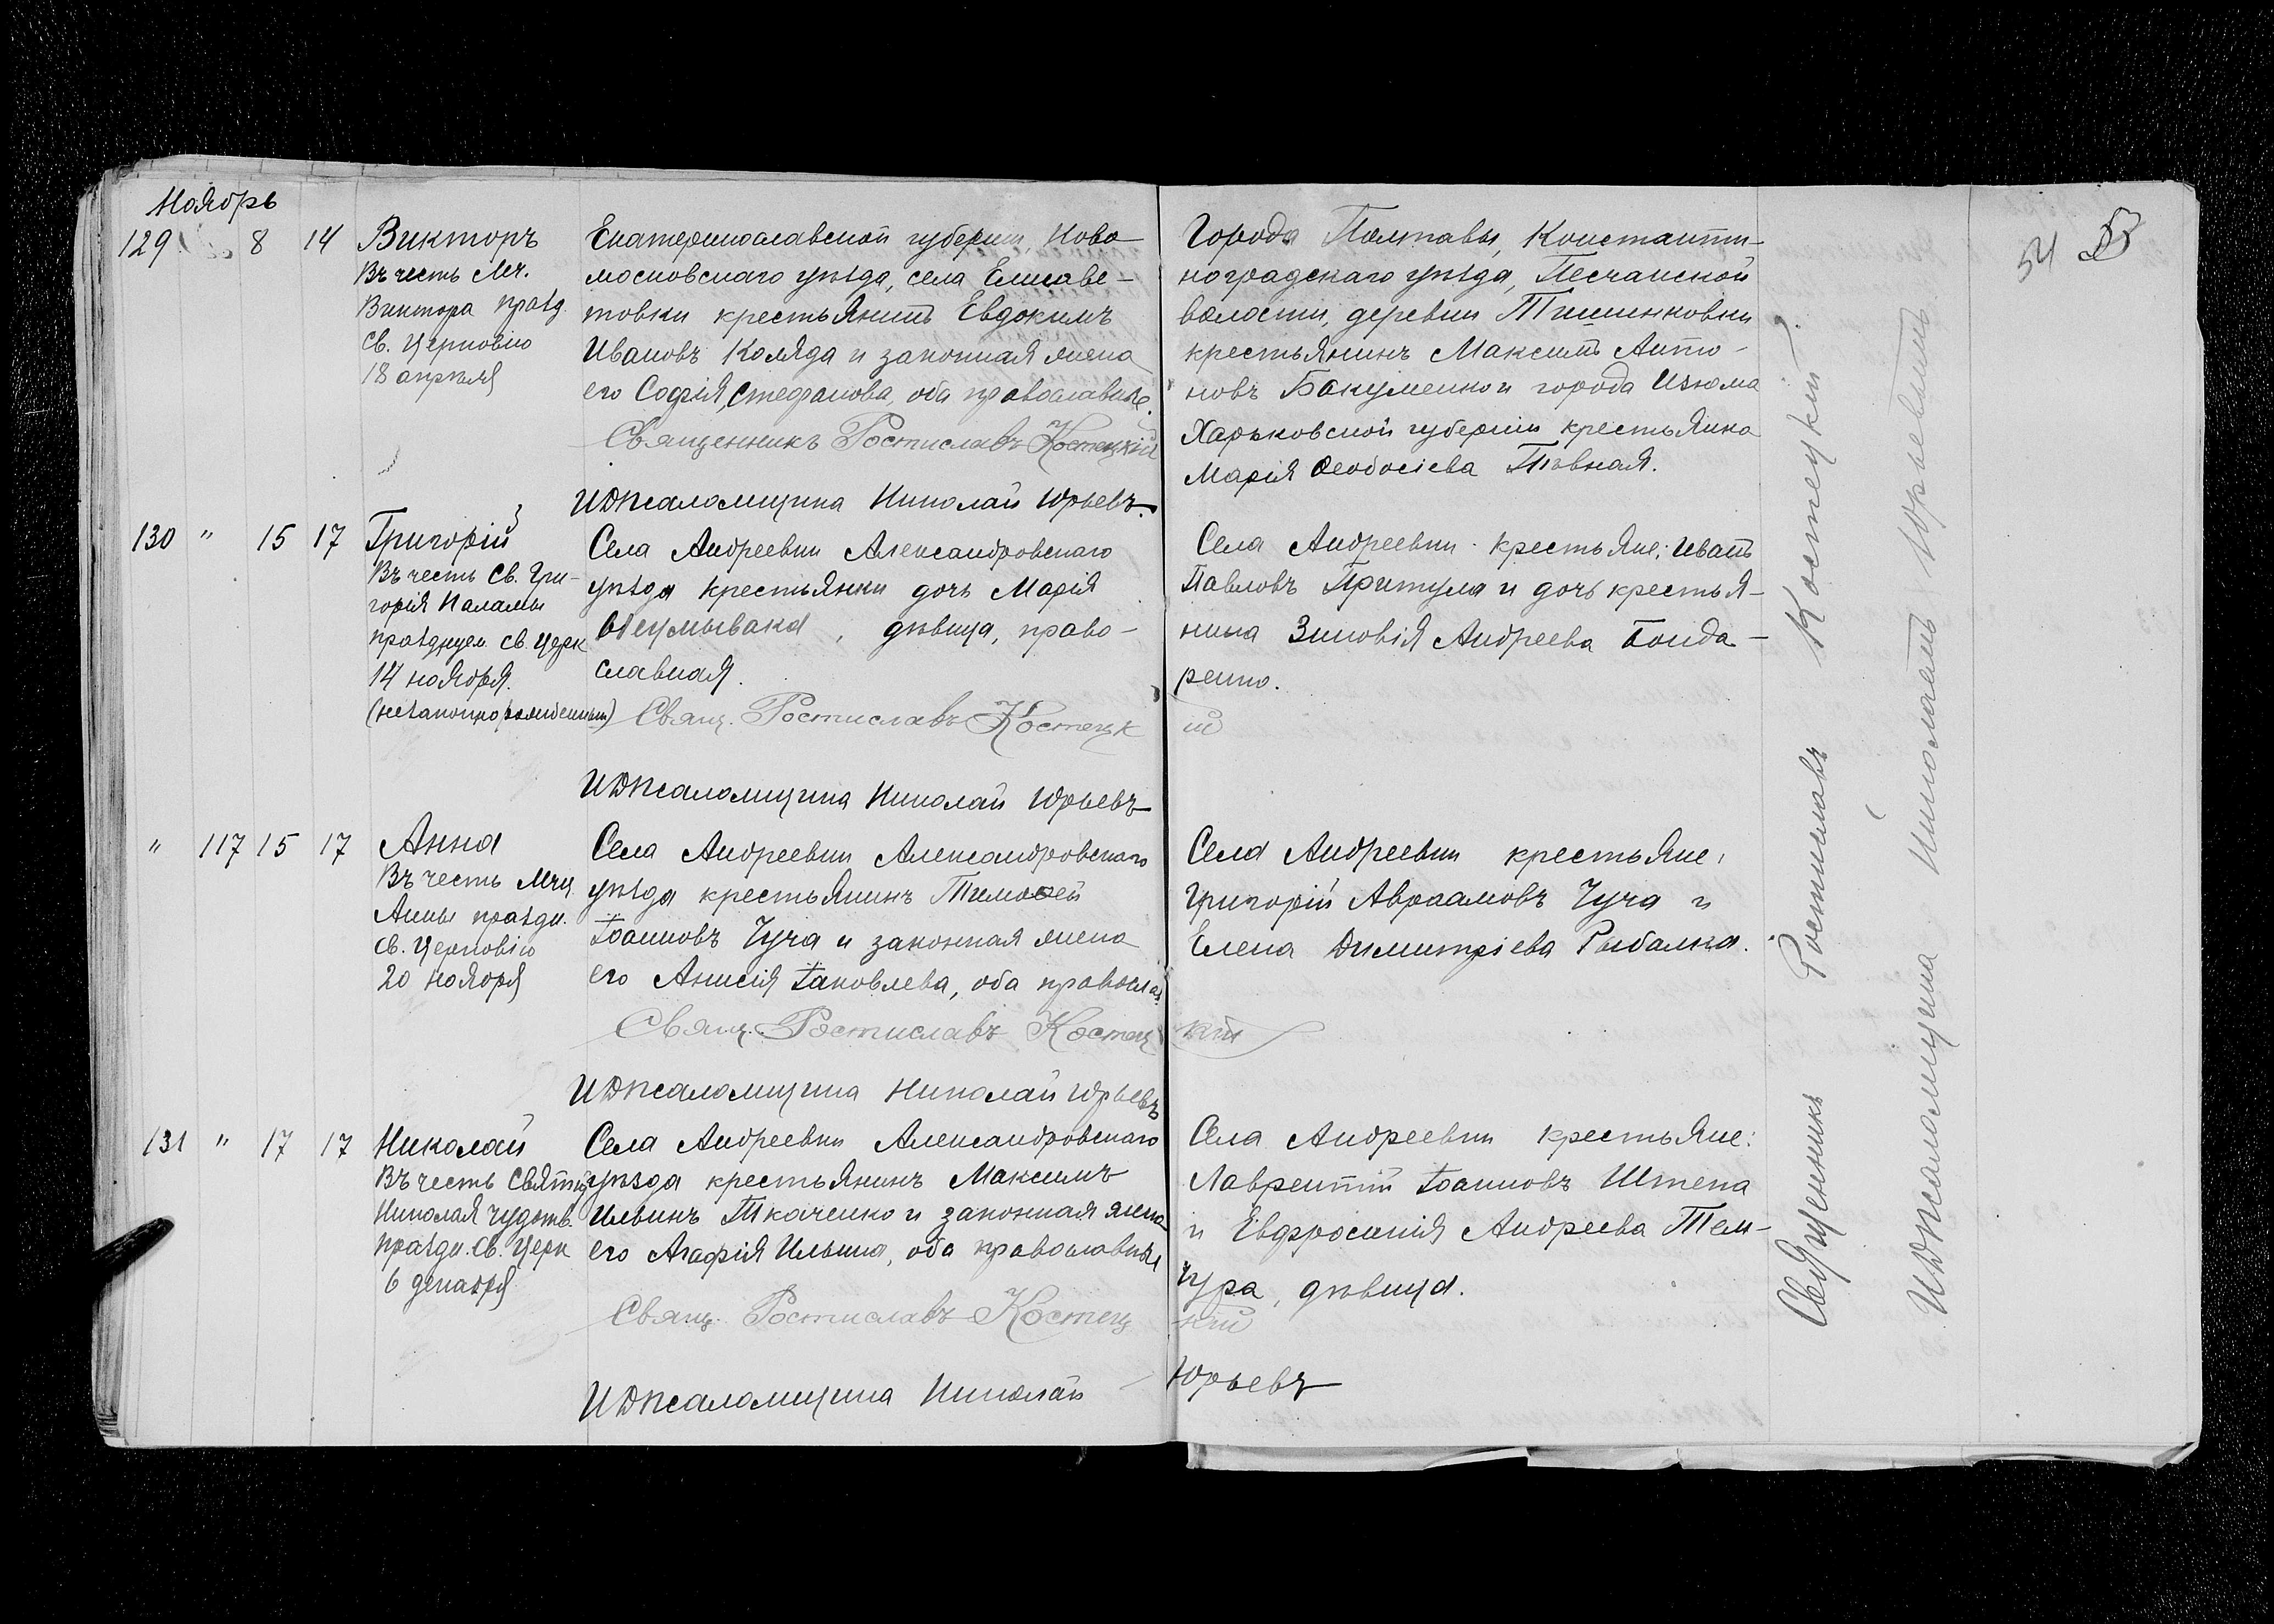 Ноябрь
129 8 14 Викторъ
Въ честь Мч.
Виктора празд.
Св. Церковію
18 апрѣля
Екатеринославской губерніи, Ново-
московскаго уѣзда, села Елисаве-
товки крестьянинъ Евдокимъ
Ивановъ Коляда и законная жена
его Софія Стефанова, оба православные.
Священникъ Ростиславъ Костецкій
И.д. Псаломщика Николай Юрьевъ.
Города Полтавы, Константи-
ноградскаго уѣзда, Песчанской
волости, деревни Тишенковки
крестьянинъ Максимъ Анто-
новъ Бакуменко и города Изюма
Харьковской губерніи крестьянка
Марія Ѳеодосіева
130 " 15 17 Григорій
Въ честь Св. Гри-
горія Паламы
празднуем. Св. Церк
14 ноября.
(незаконнорожденный)
Села Андреевки Александровскаго
уѣзда крестьянки дочь Марія
дѣвица, право-
славная.
Свящ. Ростиславъ Костецк
ій
И.д. Псаломщика Николай Юрьевъ
Села Андреевки крестьяне: Иванъ
Павловъ Притула и дочь крестья-
нина Зиновія Андреева Бонда-
ренко.
" 117 15 17 Анна
Въ честь Мчц
Анны праздн.
Св. Церковію
20 ноября
Села Андреевки Александровскаго
уѣзда крестьянинъ Тимоѳей
Іоанновъ Чуча и законная жена
его Анисія Іаковлева, оба правосла
Свящ. Ростиславъ Костец
кій
И.д. Псаломщика Николай Юрьевъ
Села Андреевки крестьяне,
Григорій Авраамовъ Чуча и
Елена Димитріева Рыбалка.
131 " 17 17 Николай
Въ честь Святит
Николая Чудотв.
праздн. Св. Церк
6 декабря
Села Андреевки Александровскаго
уѣзда крестьянинъ Максимъ
Ильинъ Ткаченко и законная жена
его Агафія Ильина, оба православные
Свящ. Ростиславъ Костец
кій
И.д. Псаломщика Николай
Юрьевъ
Села Андреевки крестьяне:
Лаврентій Іоанновъ Штепа
и Евфросинія Андреева Тем-
чура, дѣвица.
Священникъ Ростиславъ Костецкій
И.д. Псаломщика Николай Юрьевъ
54